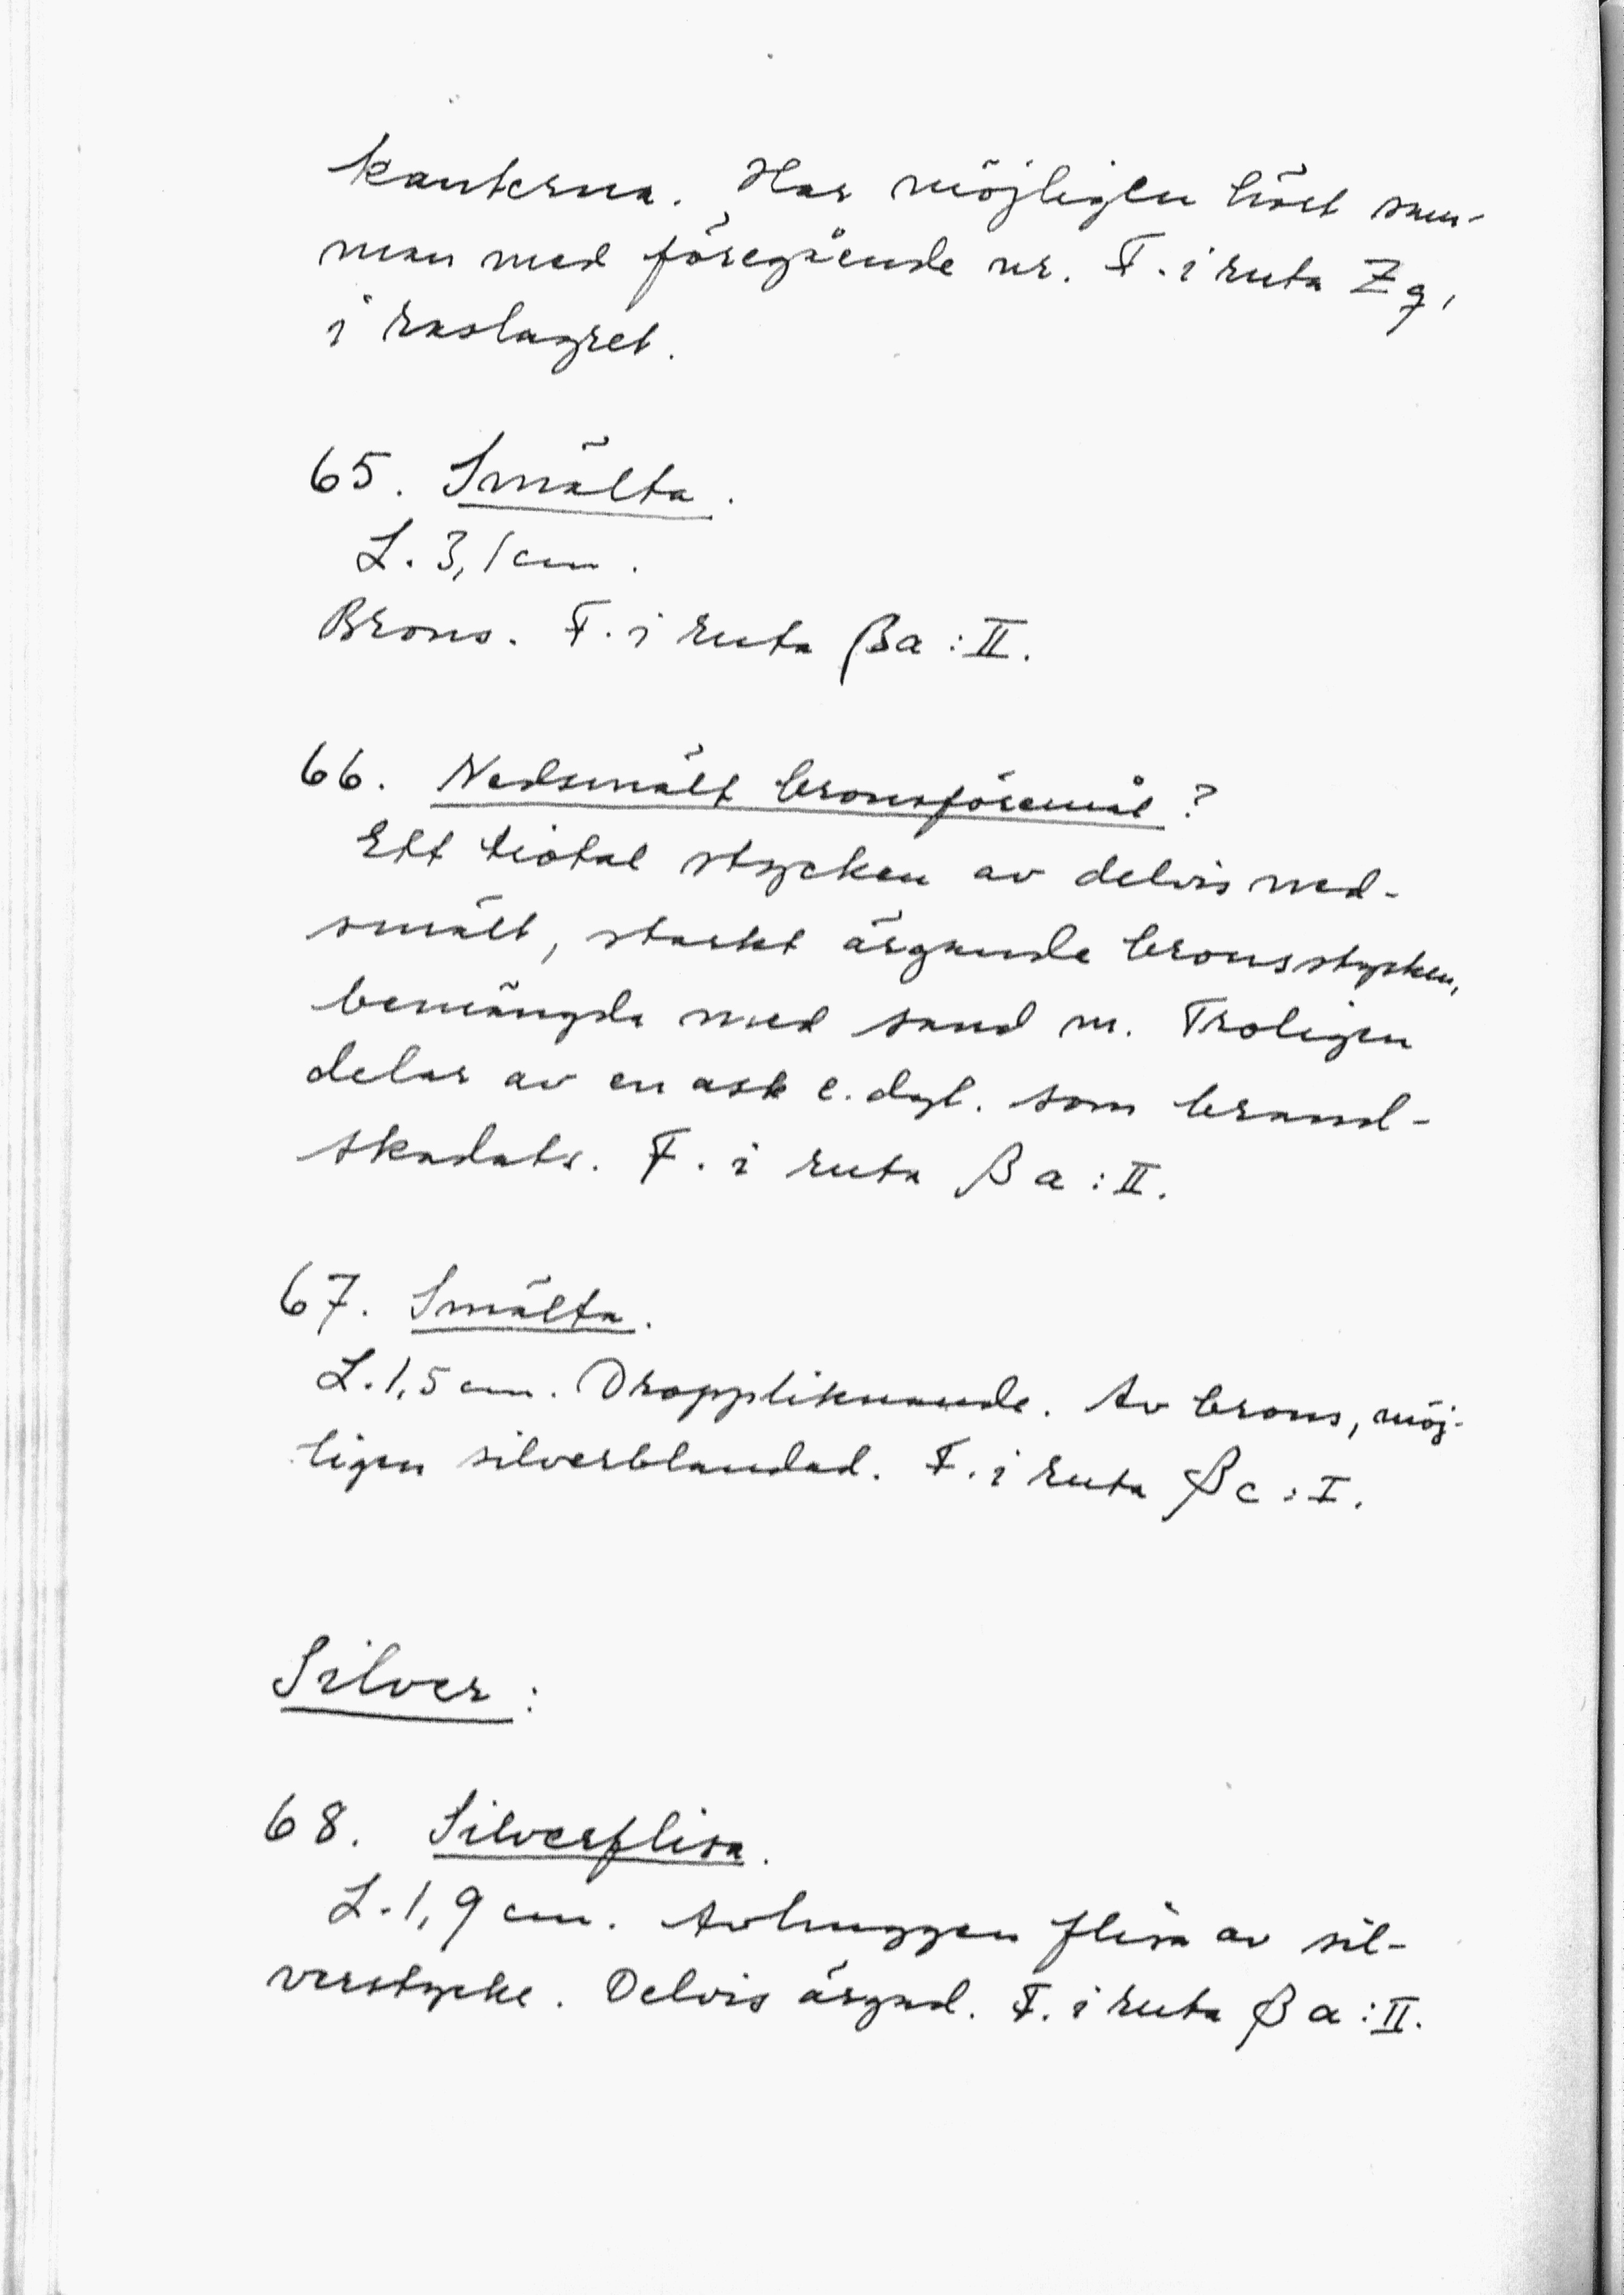 kanterna. Har möjligen hört sam-
man med föregående nr. F. i ruta Zg,
i raslagret.
65. Smälta.
L. 3,1 cm.
Brons. F. i ruta βa:II.
66. Nedsmält bronsföremål?
Ett tiotal stycken av delvis ned-
smält, starkt ärgande bronsstycken,
bemängda med sand m. Troligen
delar av en ask e. dyl. som brand-
skadats. F. i ruta βa:II.
67. Smälta.
L. 1,5 cm. Droppliknande. Av brons, möj-
ligen silverblandad. F. i ruta βc:I.
Silver:
68. Silverflisa.
L. 1,9 cm. Avhuggen flisa av sil-
verstycke. Delvis ärgad. F. i ruta βa:II.